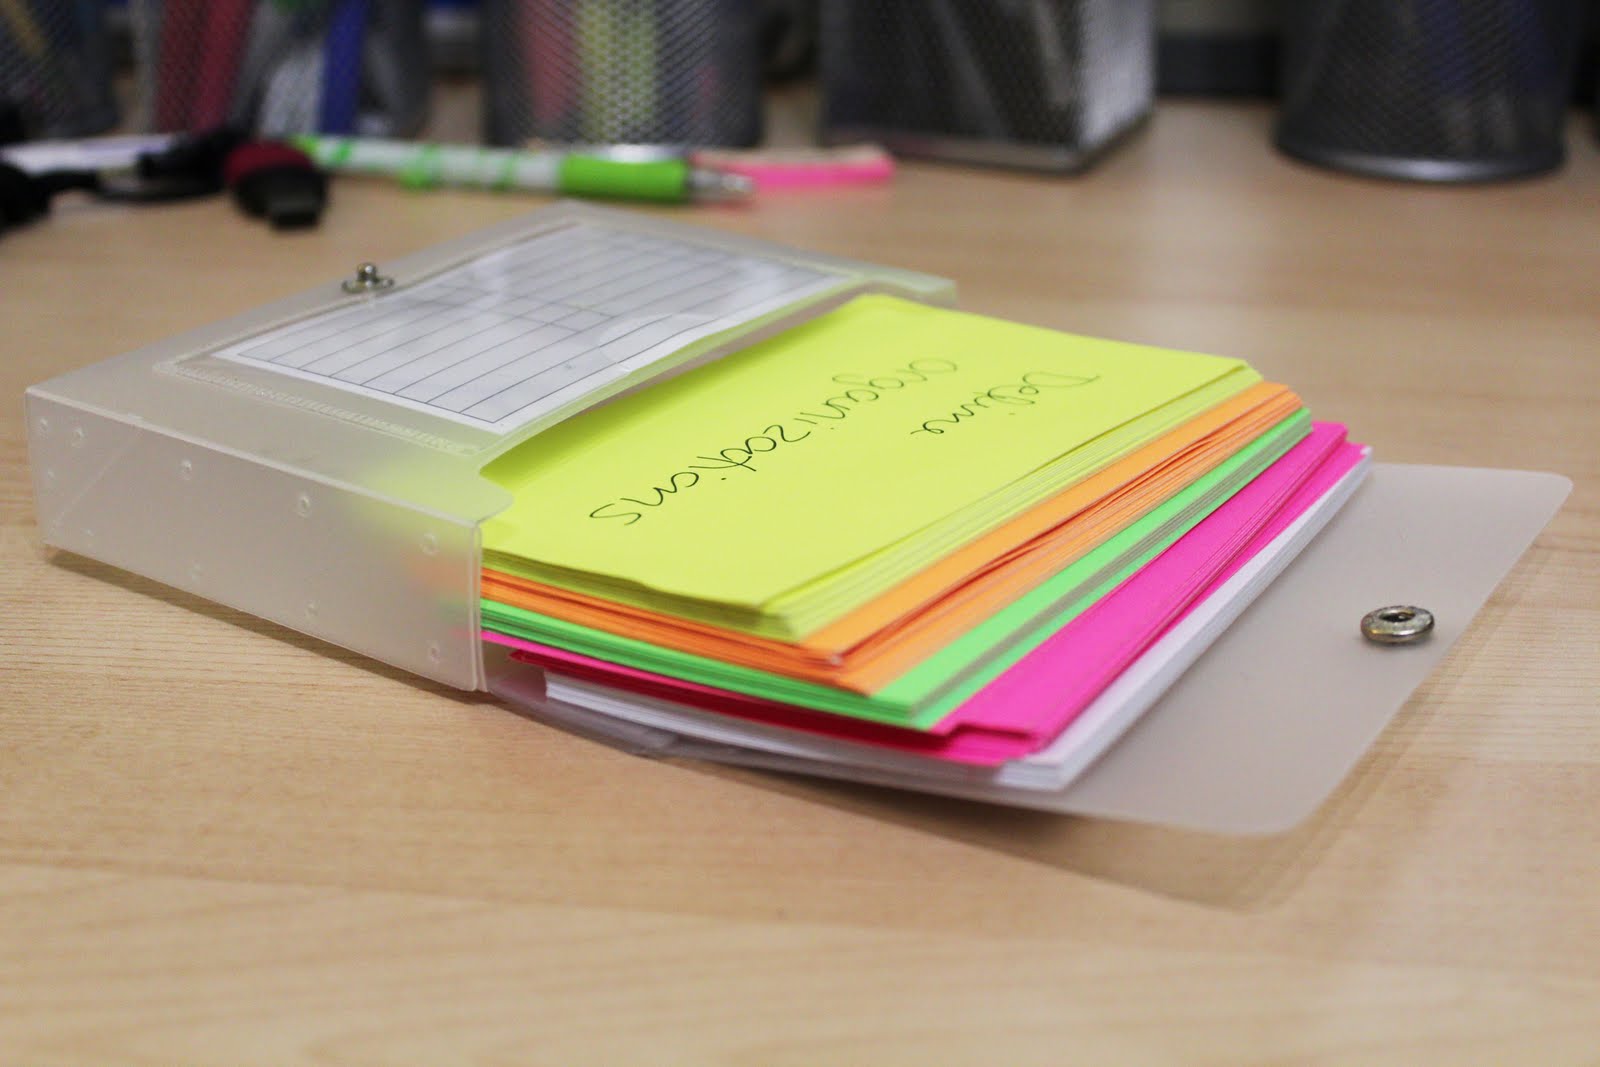 Define
organizations